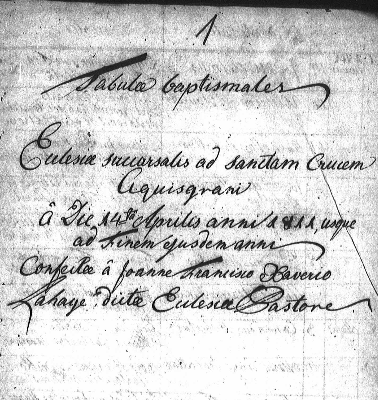 1
Tabulæ baptismales
Eclesiæ succursalis ad sanctam Crucem
Aquisgrani
â Die 14ta Aprilis anni 1811, usque
ad finem ejusdem anni
Confectæ â Joanne Francisco Xaverio
Lahaye dictæ Eclesiæ Pastore